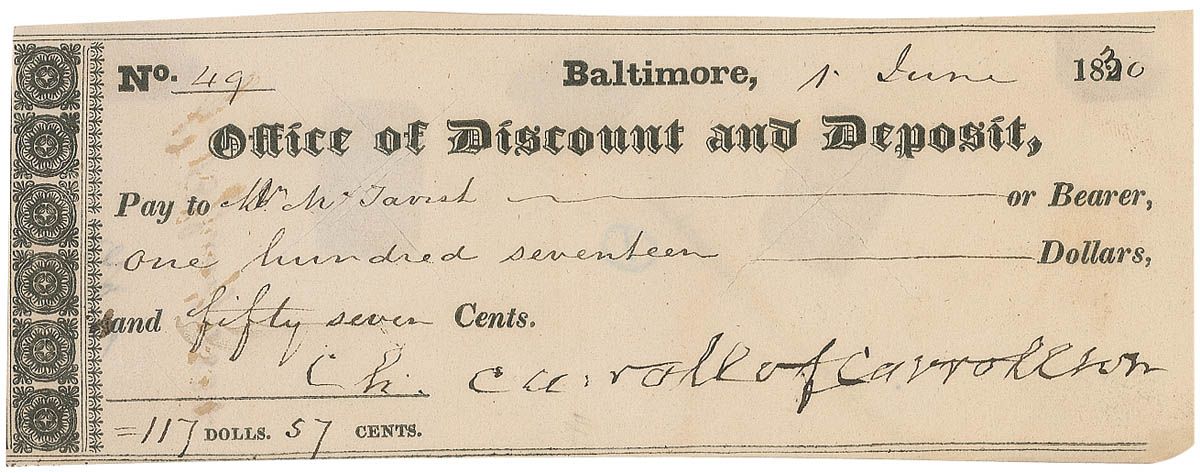 No. 49 Baltimore, 1. June 1830
Office of Discount and Deposit,
Pay to Mr. McTavish or Bearer,
one hundred seventeen Dollars,
and fifty seven Cents.
Ch. Carroll of Carrollton
=117 DOLLS. 57 CENTS.